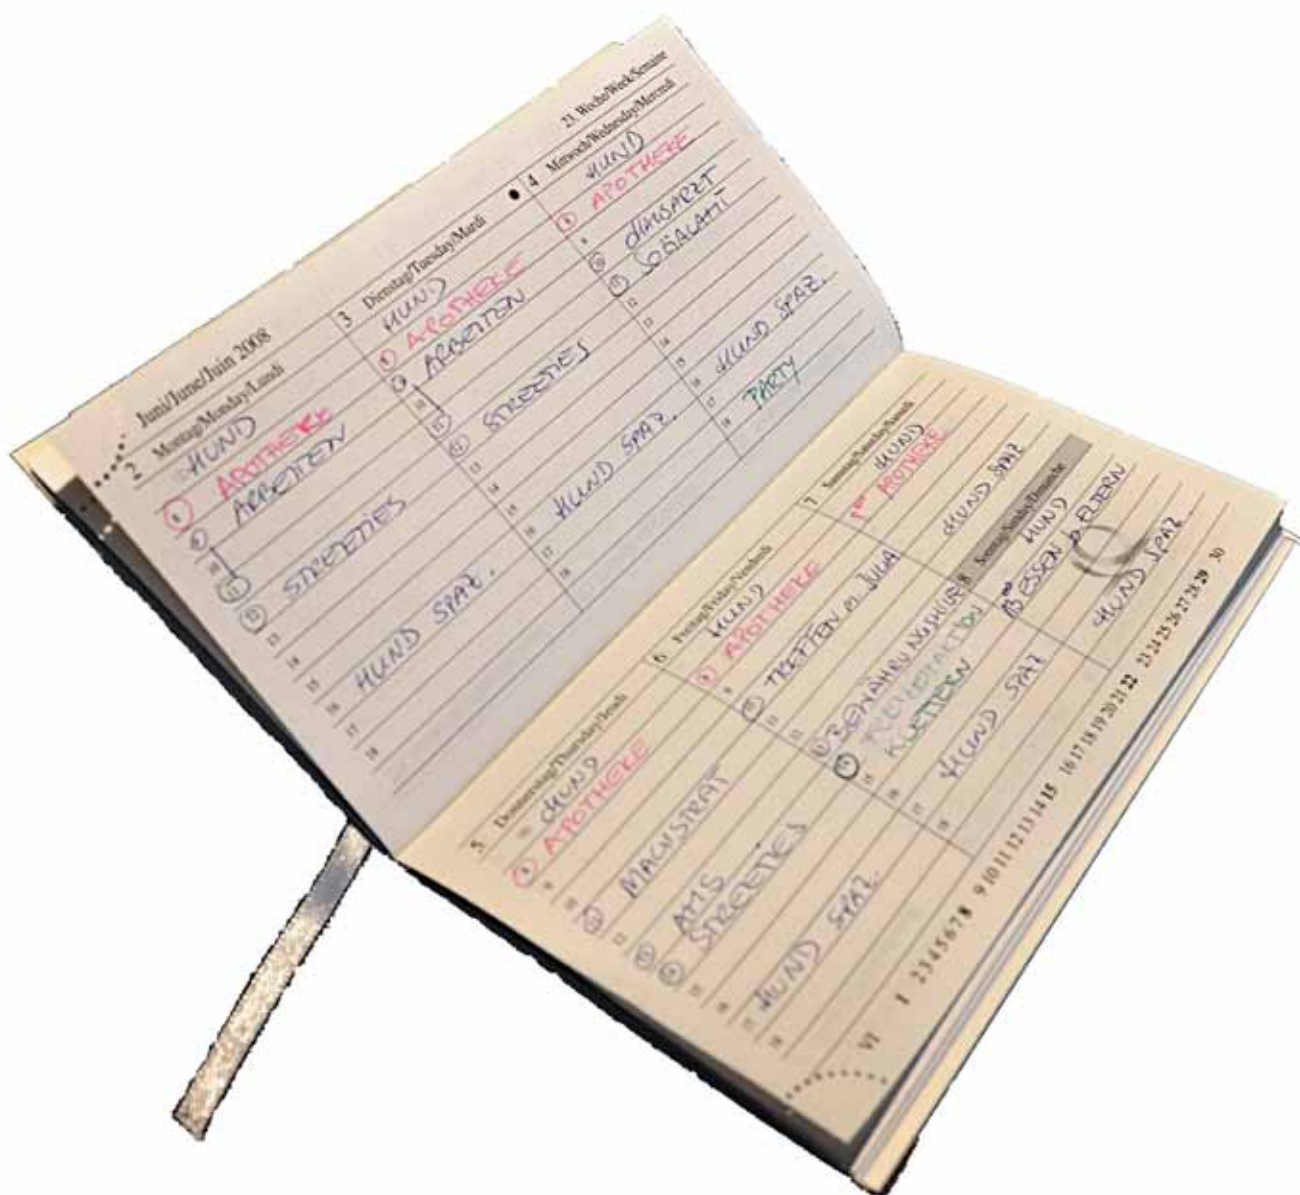 Juni/June/Juin 2008
23. Woche/Week/Semaine
2 Montag/Monday/Lundi
HUND
8 APOTHEKE
9 ARBEITEN
10
11
12 STREETIES
13
14
15
16 HUND SPAZ.
17
18
3 Dienstag/Tuesday/Mardi
HUND
8 APOTHEKE
9 ARBEITEN
10
11
12 STREETIES
13
14
15
16 HUND SPAZ.
17
18
4 Mittwoch/Wednesday/Mercredi
HUND
8 APOTHEKE
9
10 HAUSARZT
11 SOZIALAMT
12
13
14
15
16 HUND SPAZ.
17
18 PARTY
5 Donnerstag/Thursday/Jeudi
HUND
8 APOTHEKE
9
10
11 MAGISTRAT
12
13 AMS
14 STREETIES
15
16
17 HUND SPAZ.
18
6 Freitag/Friday/Vendredi
HUND
8 APOTHEKE
9
10 TREFFEN m. JULIA
11
12
13 BEWÄHRUNGSHILFE
14
KLETTERN
15
16
17 HUND SPAZ
18
7 Samstag/Saturday/Samedi
HUND
APOTHEKE
HUND SPAZ
8 Sonntag/Sunday/Dimanche
HUND
ESSEN ELTERN
HUND SPAZ.
VI 1 2 3 4 5 6 7 8 9 10 11 12 13 14 15 16 17 18 19 20 21 22 23 24 25 26 27 28 29 30